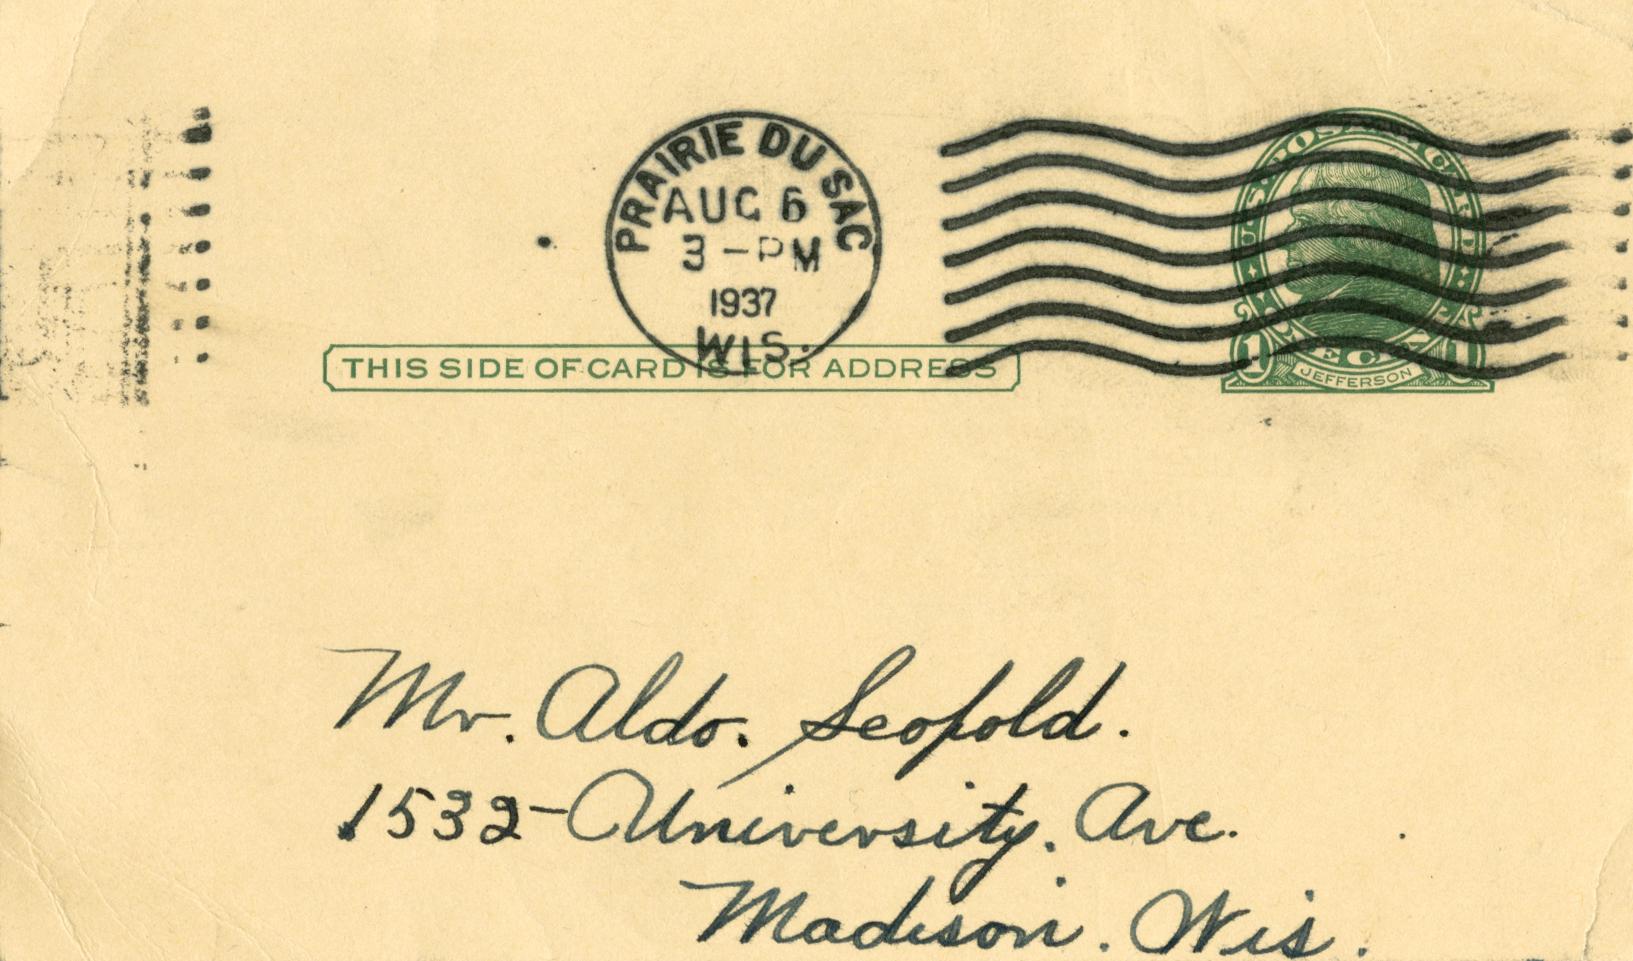 PRAIRIE DU SAC
AUG 6
3-PM
1937
WIS.
U.S. POSTAL CARD
THIS SIDE OF CARD IS FOR ADDRESS
1 CENT 1
JEFFERSON
Mr. Aldo. Leopold.
1532-University. Ave.
Madison. Wis.